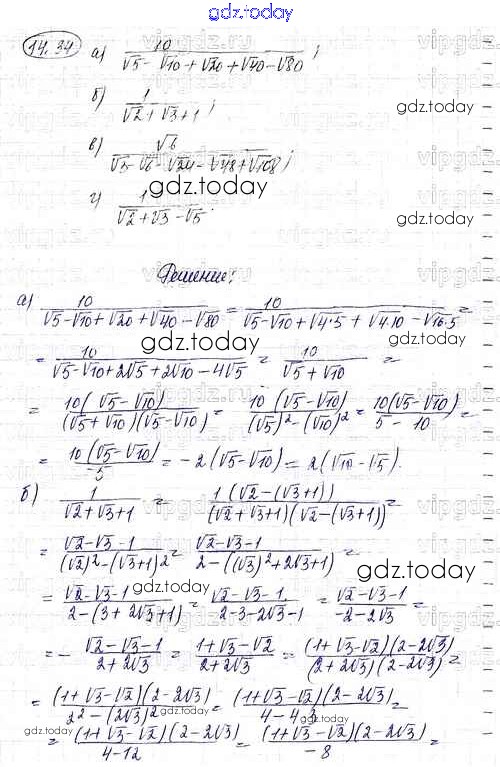 gdz.today
14.34 а) 10/(√5 - √10 + √20 + √40 - √80);
б) 1/(√2 + √3 + 1);
gdz.today
в) √6/(√5 - √6 - √24 - √48 + √108);
gdz.today
г) 1/(√2 + √3 - √5).
Решение:
а) 10/(√5 - √10 + √20 + √40 - √80) = 10/(√5 - √10 + √4·5 + √4·10 - √16·5) =
gdz.today
= 10/(√5 - √10 + 2√5 + 2√10 - 4√5) = 10/(√5 + √10) =
= 10(√5 - √10)/((√5 + √10)(√5 - √10)) = 10(√5 - √10)/((√5)² - (√10)²) = 10(√5 - √10)/(5 - 10) =
= 10(√5 - √10)/-5 = -2(√5 - √10) = 2(√10 - √5).
б) 1/(√2 + √3 + 1) = 1(√2 - (√3 + 1))/((√2 + √3 + 1)(√2 - (√3 + 1))) =
= (√2 - √3 - 1)/((√2)² - (√3 + 1)²) = (√2 - √3 - 1)/(2 - ((√3)² + 2√3 + 1)) =
gdz.today
= (√2 - √3 - 1)/(2 - (3 + 2√3 + 1)) = (√2 - √3 - 1)/(2 - 3 - 2√3 - 1) = (√2 - √3 - 1)/(-2 - 2√3) =
gdz.today
= - (√2 - √3 - 1)/(2 + 2√3) = (1 + √3 - √2)/(2 + 2√3) = (1 + √3 - √2)(2 - 2√3)/((2 + 2√3)(2 - 2√3)) =
gdz.today
= (1 + √3 - √2)(2 - 2√3)/(2² - (2√3)²) = (1 + √3 - √2)(2 - 2√3)/(4 - 4·3) =
gdz.today
= (1 + √3 - √2)(2 - 2√3)/(4 - 12) = (1 + √3 - √2)(2 - 2√3)/-8 =